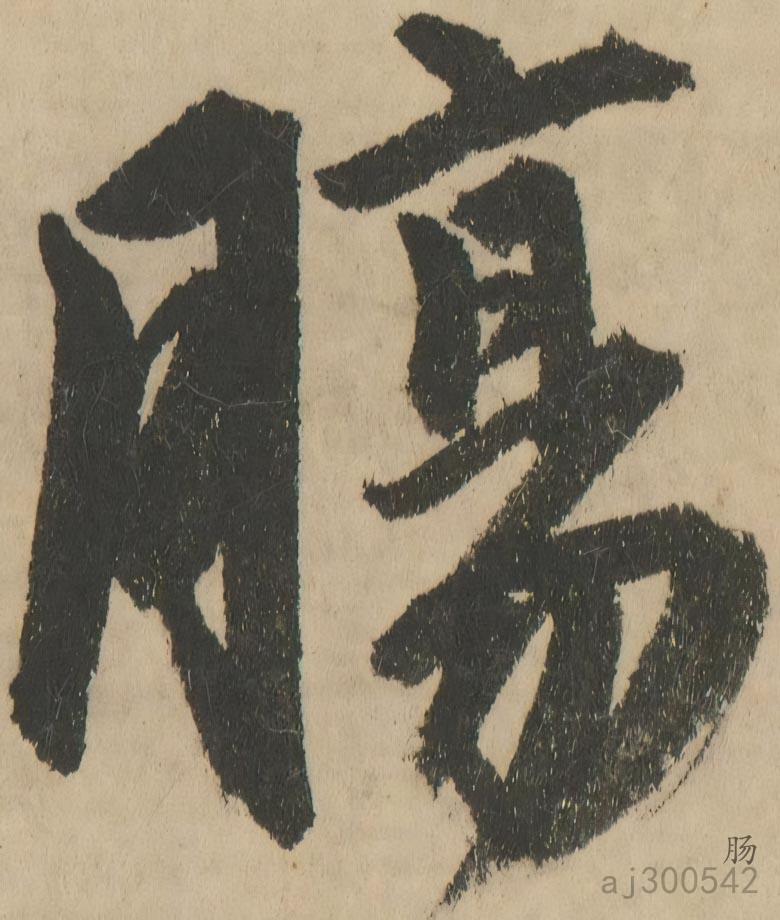 膓
肠
aj300542